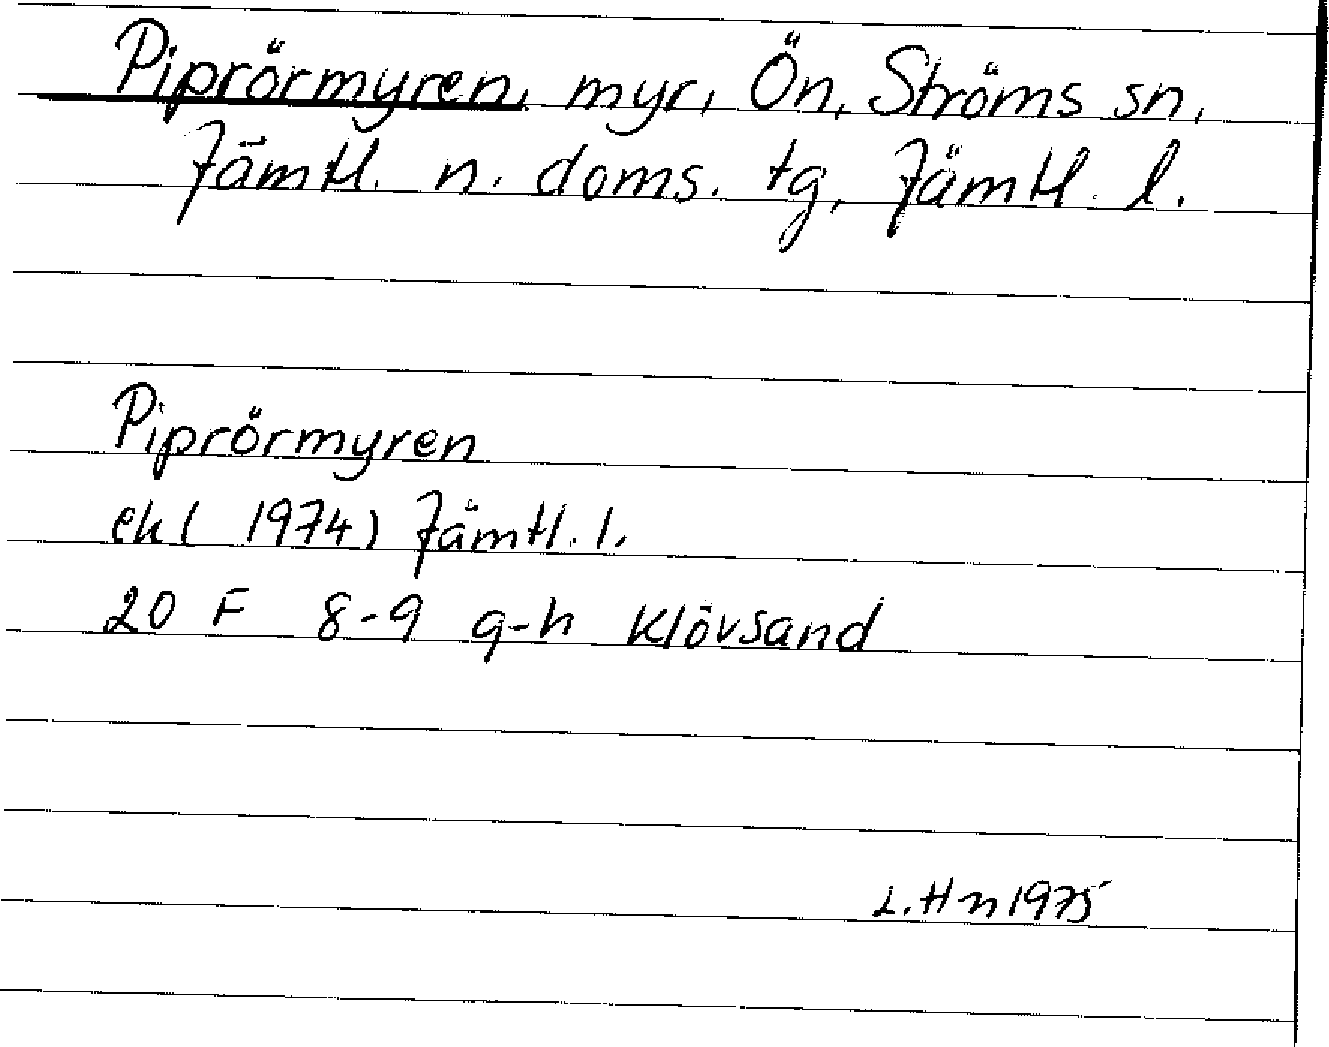 Piprörmyren, myr, Ön, Ströms sn,
Jämtl. n. doms. tg, Jämtl. l.
Piprörmyren
ek ( 1974) Jämtl. l.
20 F 8-9 g-h Klövsand
L. Hn 1975